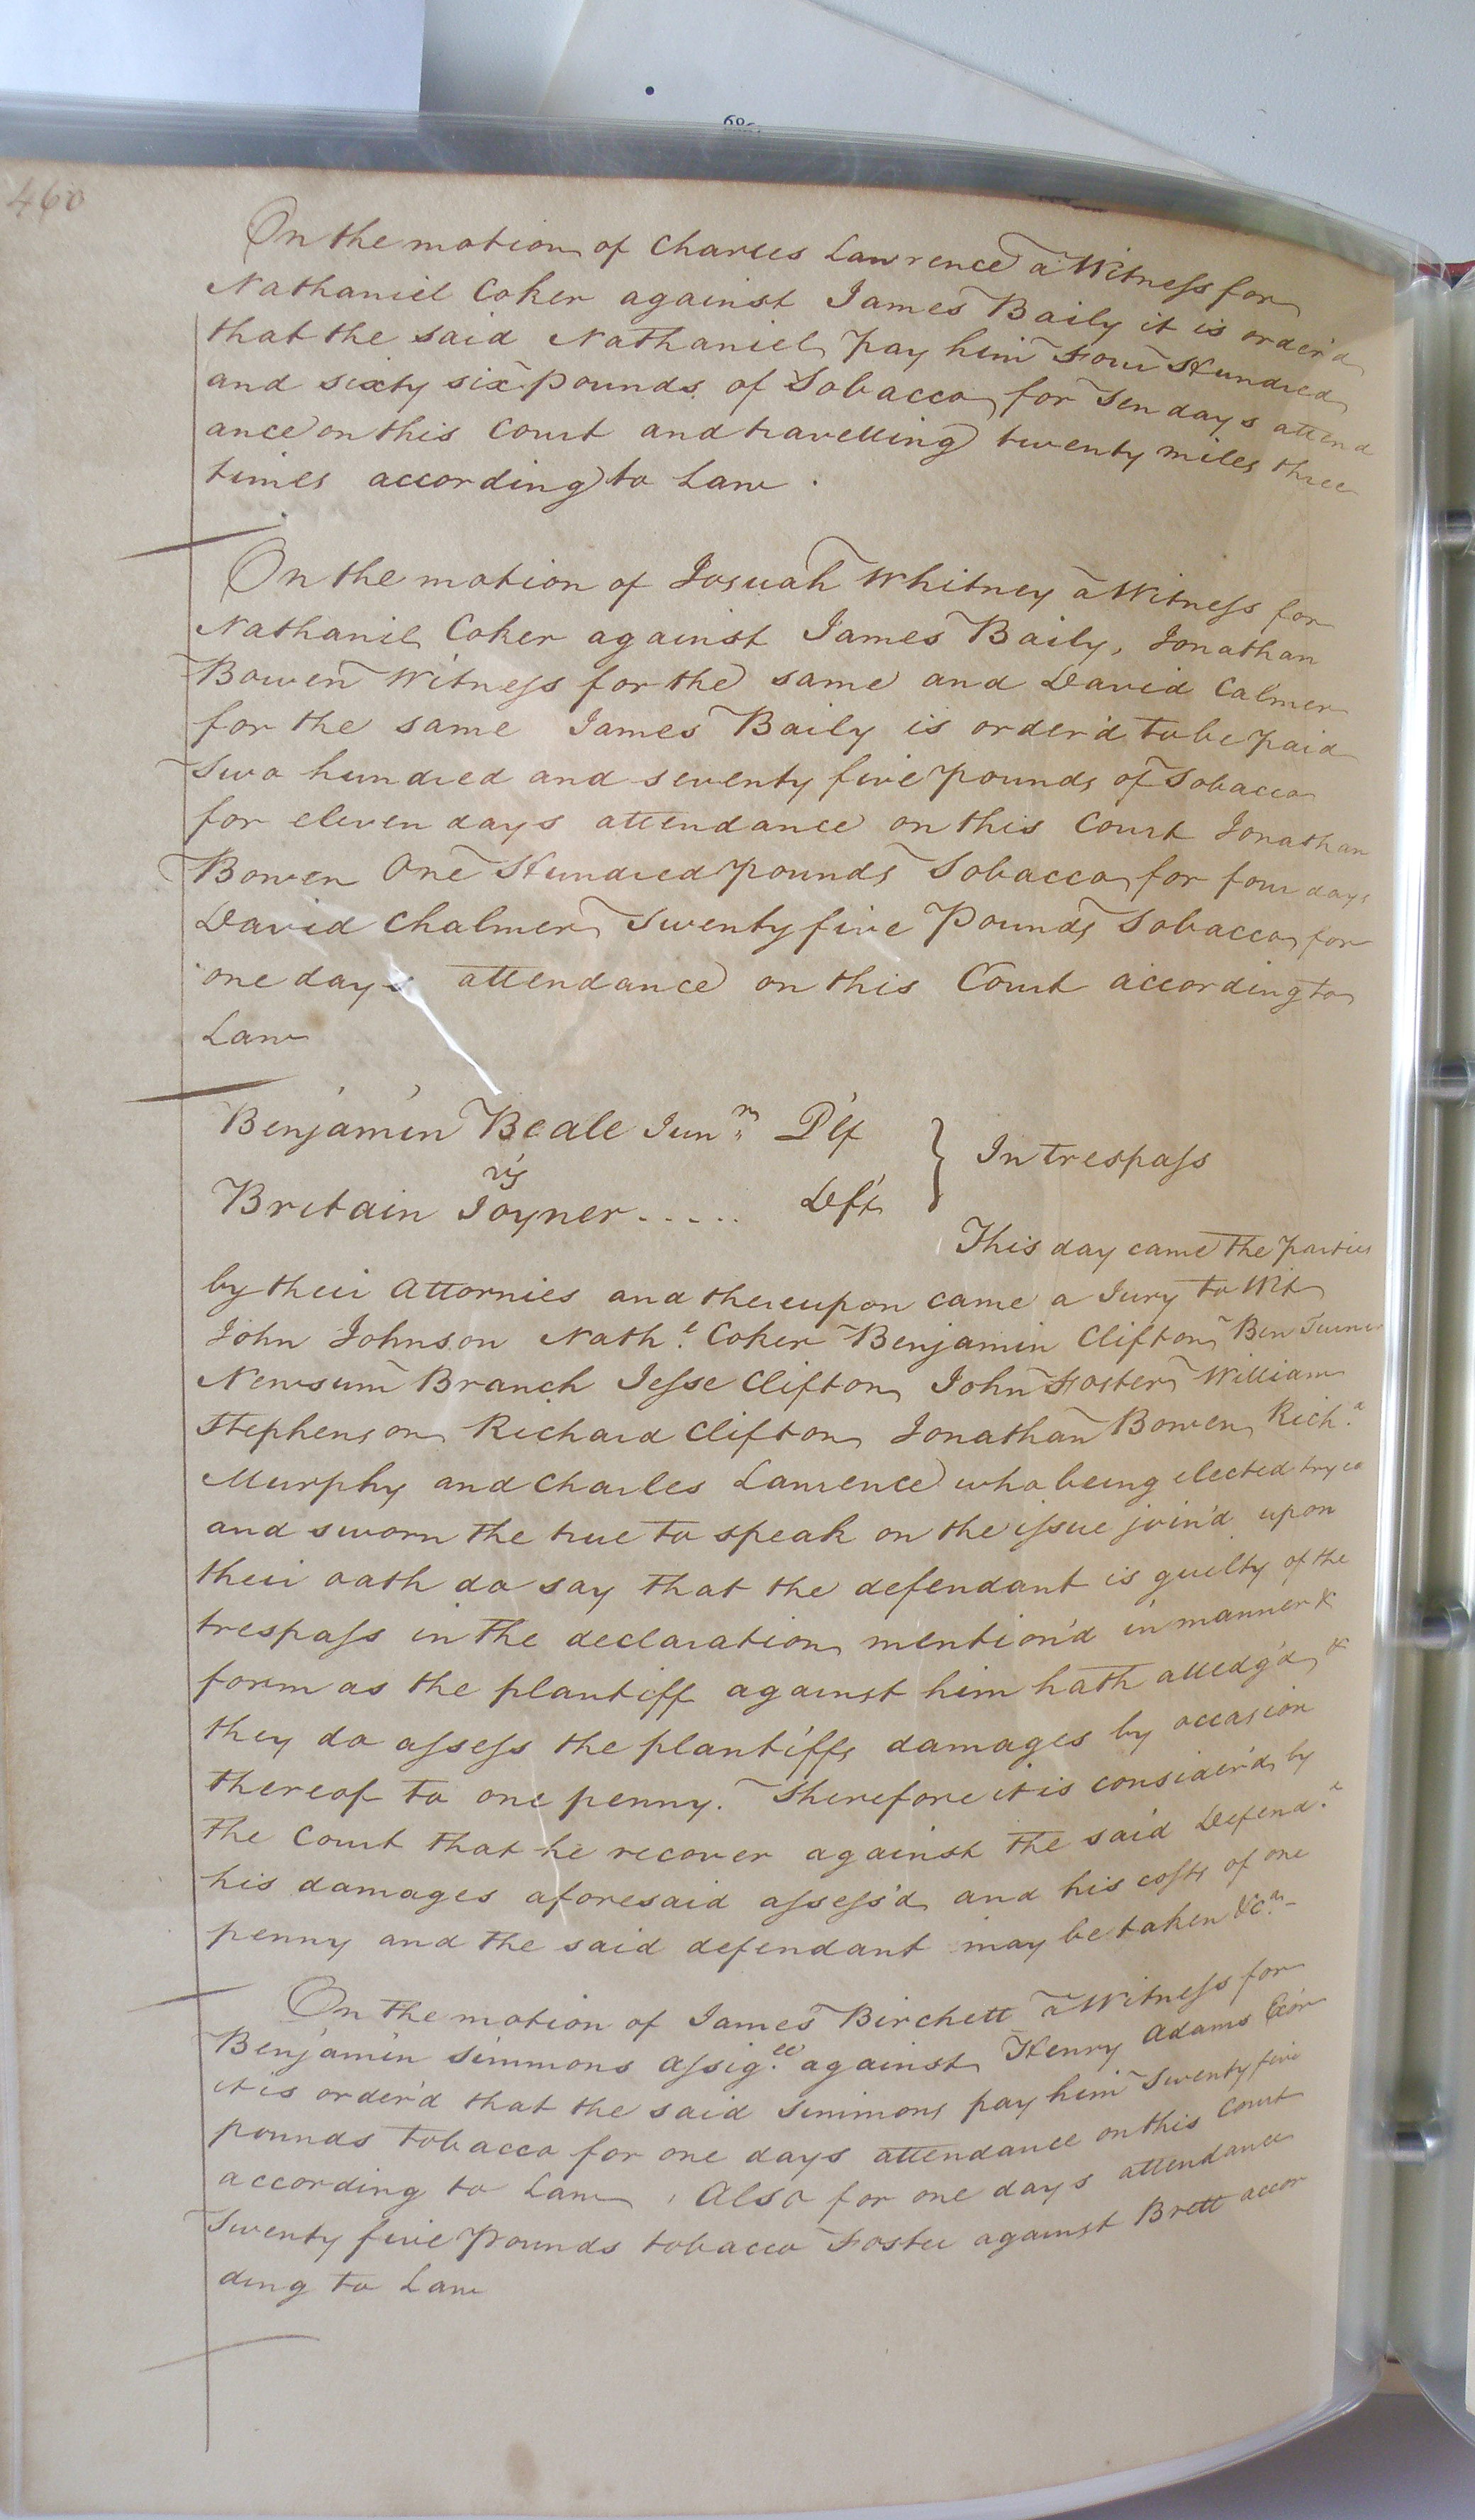 460
On the motion of Charles Lawrence a Witness for
Nathaniel Coker against James Baily it is order'd
that the said Nathaniel pay him Four Hundred
and sixty six pounds of Tobacco for Ten days attend
ance on this Court and travelling twenty miles three
times according to Law.
On the motion of Josuah Whitney a Witness for
Nathaniel Coker against James Baily, Jonathan
Bowen Witness for the same and David Calmer
for the same James Baily is order'd to be paid
Two hundred and seventy five pounds of Tobacco
for eleven days attendance on this Court Jonathan
Bowen One Hundred pounds Tobacco for four days
David Chalmers Twenty five Pounds Tobacco for
one days attendance on this Court according to
Law
Benjamin Beale Junr. Plf
vs
Britain Joyner..... Deft
} In trespass
This day came the parties
by their Attornies and thereupon came a Jury to Wit
John Johnson Nathl. Coker Benjamin Clifton Ben Turner
Newsum Branch Jesse Clifton John Foster William
Stephenson Richard Clifton Jonathan Bowen Richd.
Murphy and Charles Lawrence who being elected tryed
and sworn the true to speak on the issue join'd upon
their oath do say that the defendant is guilty of the
trespass in the declaration mention'd in manner &
form as the plantiff against him hath alledg'd &
they do assess the plantiffs damages by occasion
thereof to one penny. Therefore it is consider'd by
the Court that he recover against the said Defendt.
his damages aforesaid assess'd and his costs of one
penny and the said defendant may be taken &ca.-
On the motion of James Birchett a Witness for
Benjamin Simmons Assigee. against Henry Adams Exor
it is order'd that the said Simmons pay him Twenty five
pounds tobacco for one days attendance on this Court
according to Law, Also for one days attendance
Twenty five Pounds tobacco Foster against Brett accor
ding to Law